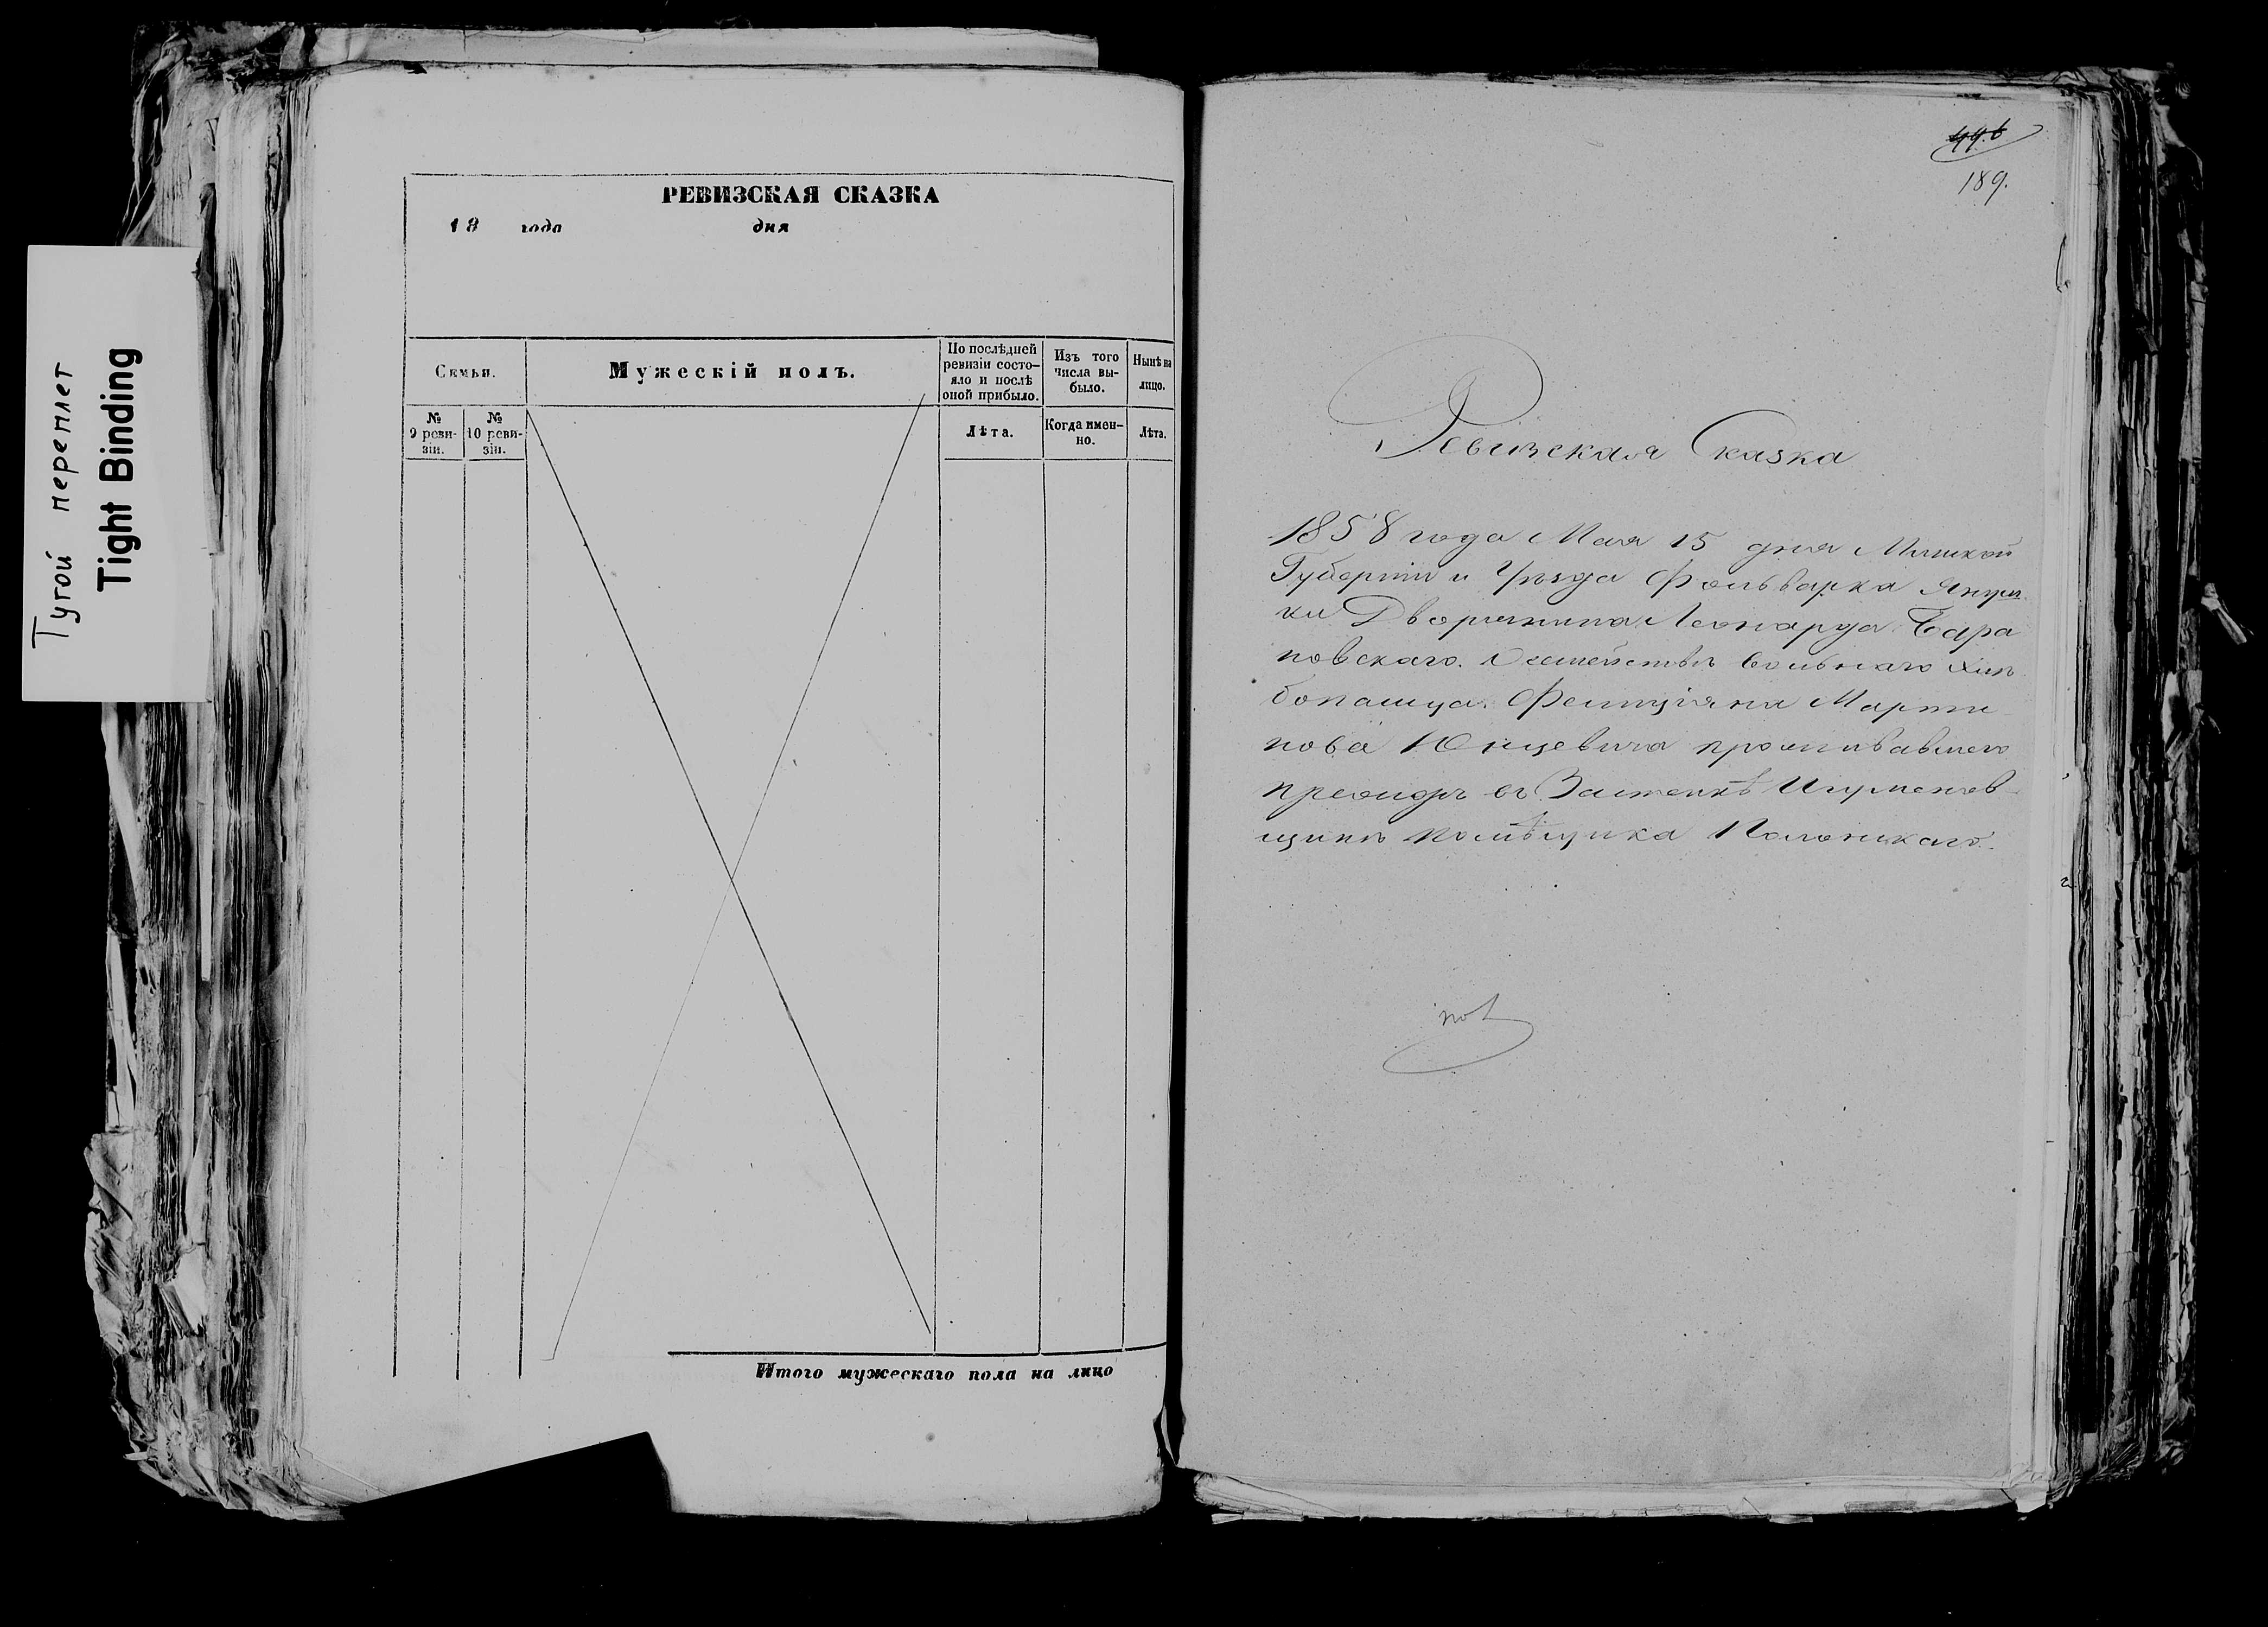 Тугой переплет
Tight Binding
РЕВИЗСКАЯ СКАЗКА
18 года дня
Семьи.
Мужескій полъ.
По послѣдней
ревизіи состо-
яло и послѣ
оной прибыло.
Изъ того
числа вы-
было.
Нынѣ на
лицо.
№
9 реви-
зіи.
№
10 реви-
зіи.
Лѣта.
Когда имен-
но.
Лѣта.
Итого мужескаго пола на лицо
189.
Ревизская Сказка
1858 года Мая 15 дня Минской
Губерніи и Уѣзда Фольварка Януш
ки Дворянина Леонарда Бара
новскаго. О семействѣ вольнаго хлѣ
бопашца Фелиціяна Марти
нова Юнцевича проживавшего
прежде въ Застенкѣ Игуменов
щинѣ помѣщика Полонскаго.